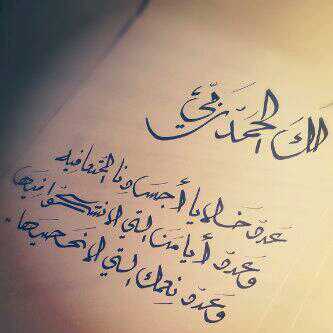 لك الحمد ربي
عدد خلايا أجسادنا المتعافيه
وعدد أيامنا التي لا نشقى فيها
وعدد نعمك التي لا نحصيها..